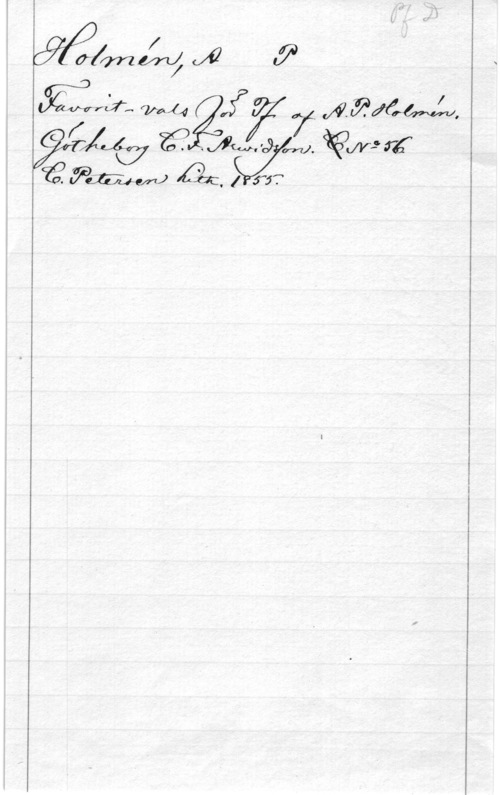 Pf D
Holmén, A P
Favorit-vals för Pf. af A.P. Holmén.
Götheborg C.F. Arwidsson. No 56
C. Petersen lith. 1855.